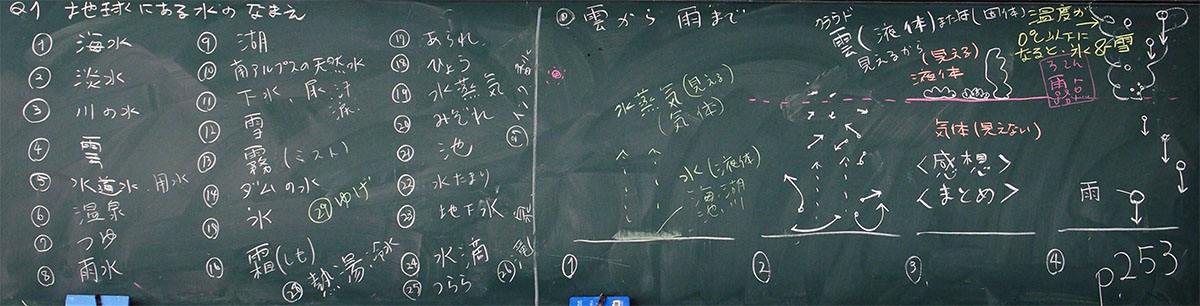 Q1 地球にある水のなまえ
① 海水
② 淡水
③ 川の水
④ 雲
⑤ 水道水、用水
⑥ 温泉
⑦ つゆ
⑧ 雨水
⑨ 湖
⑩ 南アルプスの天然水
⑪ 下水、尿、汗
⑫ 雪
⑬ 霧(ミスト)
⑭ ダムの水
⑮ 氷
⑯ 霜(しも)
⑰ あられ
⑱ ひょう
⑲ 水蒸気
⑳ みぞれ
㉑ 池
㉒ 水たまり
㉓ 地下水
㉔ 水滴
㉕ つらら
㉖
熱湯、冷水
㉙ ゆげ
雲から雨まで
水蒸気(見える)
(気体)
水(液体)
海、湖
池、川
①
②
クラウド
雲(液体)または(固体)
見えるから
(見える)
液体
気体(見えない)
<感想>
<まとめ>
③
温度が
0℃以下に
なると、氷&雪
雨
雨
④
p253